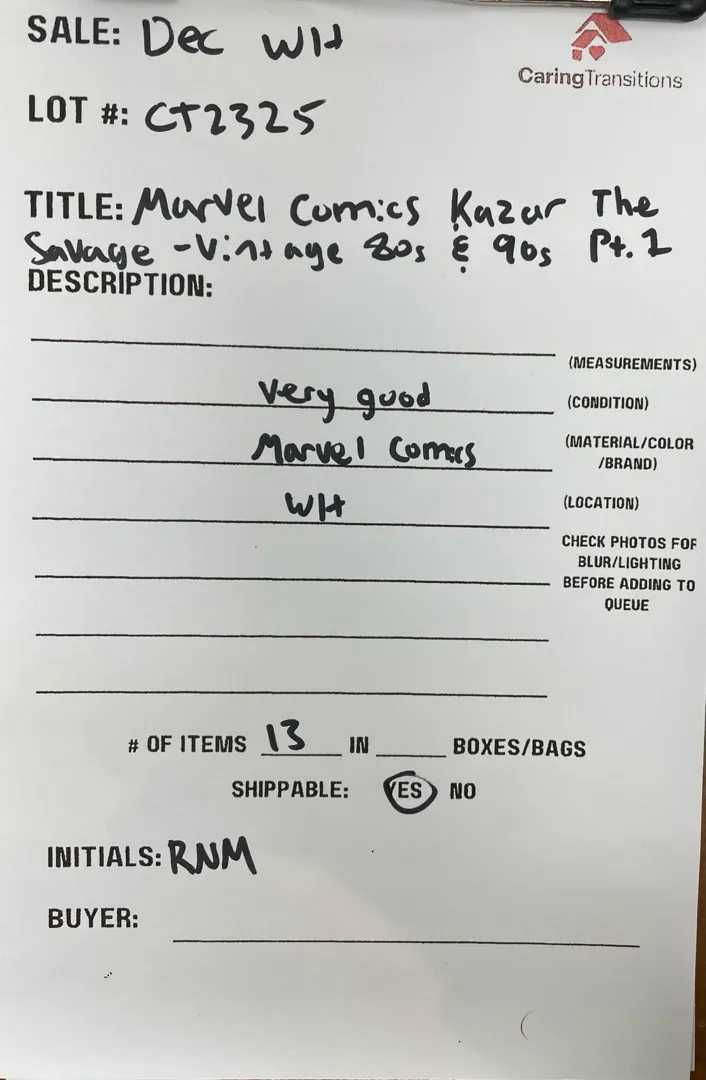 SALE: Dec WH
CaringTransitions
LOT #: CT2325
TITLE: Marvel Comics Kazar The
Savage - Vintage 80s & 90s Pt. 1
DESCRIPTION:
(MEASUREMENTS)
very good (CONDITION)
Marvel Comics (MATERIAL/COLOR
/BRAND)
WH (LOCATION)
CHECK PHOTOS FOR
BLUR/LIGHTING
BEFORE ADDING TO
QUEUE
# OF ITEMS 13 IN BOXES/BAGS
SHIPPABLE: YES NO
INITIALS: RNM
BUYER: